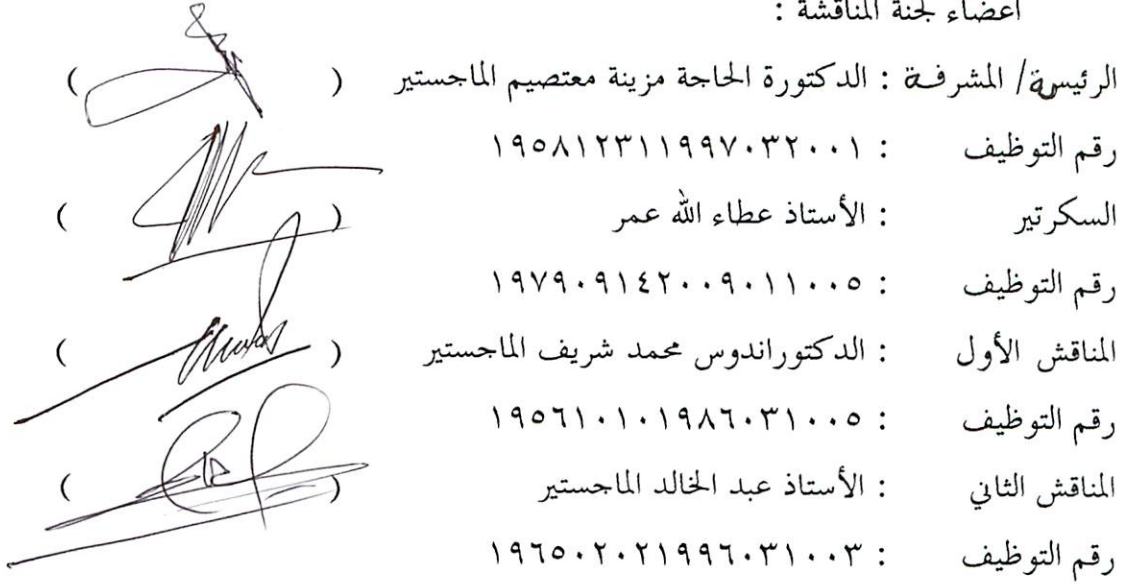 أعضاء لجنة المناقشة :
الرئيسة/ المشرفة : الدكتورة الحاجة مزينة معتصيم الماجستير ( )
رقم التوظيف : ١٩٥٨١٢٣١١٩٩٧٠٣٢٠٠١
السكرتير : الأستاذ عطاء الله عمر ( )
رقم التوظيف : ١٩٧٩٠٩١٤٢٠٠٩٠١١٠٠٥
المناقش الأول : الدكتوراندوس محمد شريف الماجستير ( )
رقم التوظيف : ١٩٥٦١٠١٠١٩٨٦٠٣١٠٠٥
المناقش الثاني : الأستاذ عبد الخالد الماجستير ( )
رقم التوظيف : ١٩٦٥٠٢٠٢١٩٩٦٠٣١٠٠٣